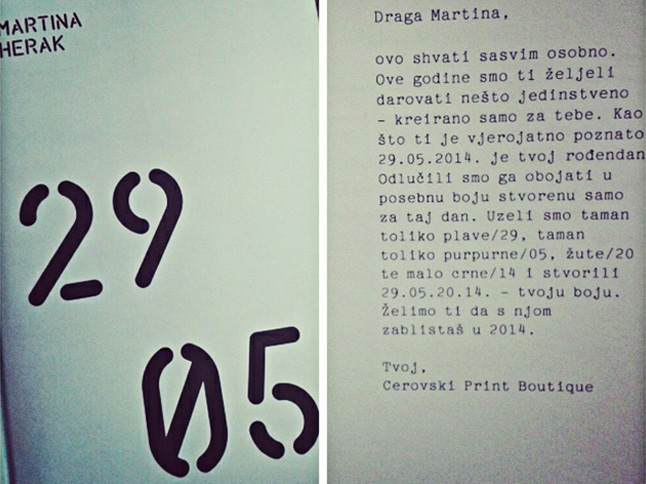 MARTINA
HERAK
29
05
Draga Martina,
ovo shvati sasvim osobno.
Ove godine smo ti željeli
darovati nešto jedinstveno
- kreirano samo za tebe. Kao
što ti je vjerojatno poznato
29.05.2014. je tvoj rođendan
Odlučili smo ga obojati u
posebnu boju stvorenu samo
za taj dan. Uzeli smo taman
toliko plave/29, taman
toliko purpurne/05, žute/20
te malo crne/14 i stvorili
29.05.20.14. - tvoju boju.
Želimo ti da s njom
zablistaš u 2014.
Tvoj,
Cerovski Print Boutique